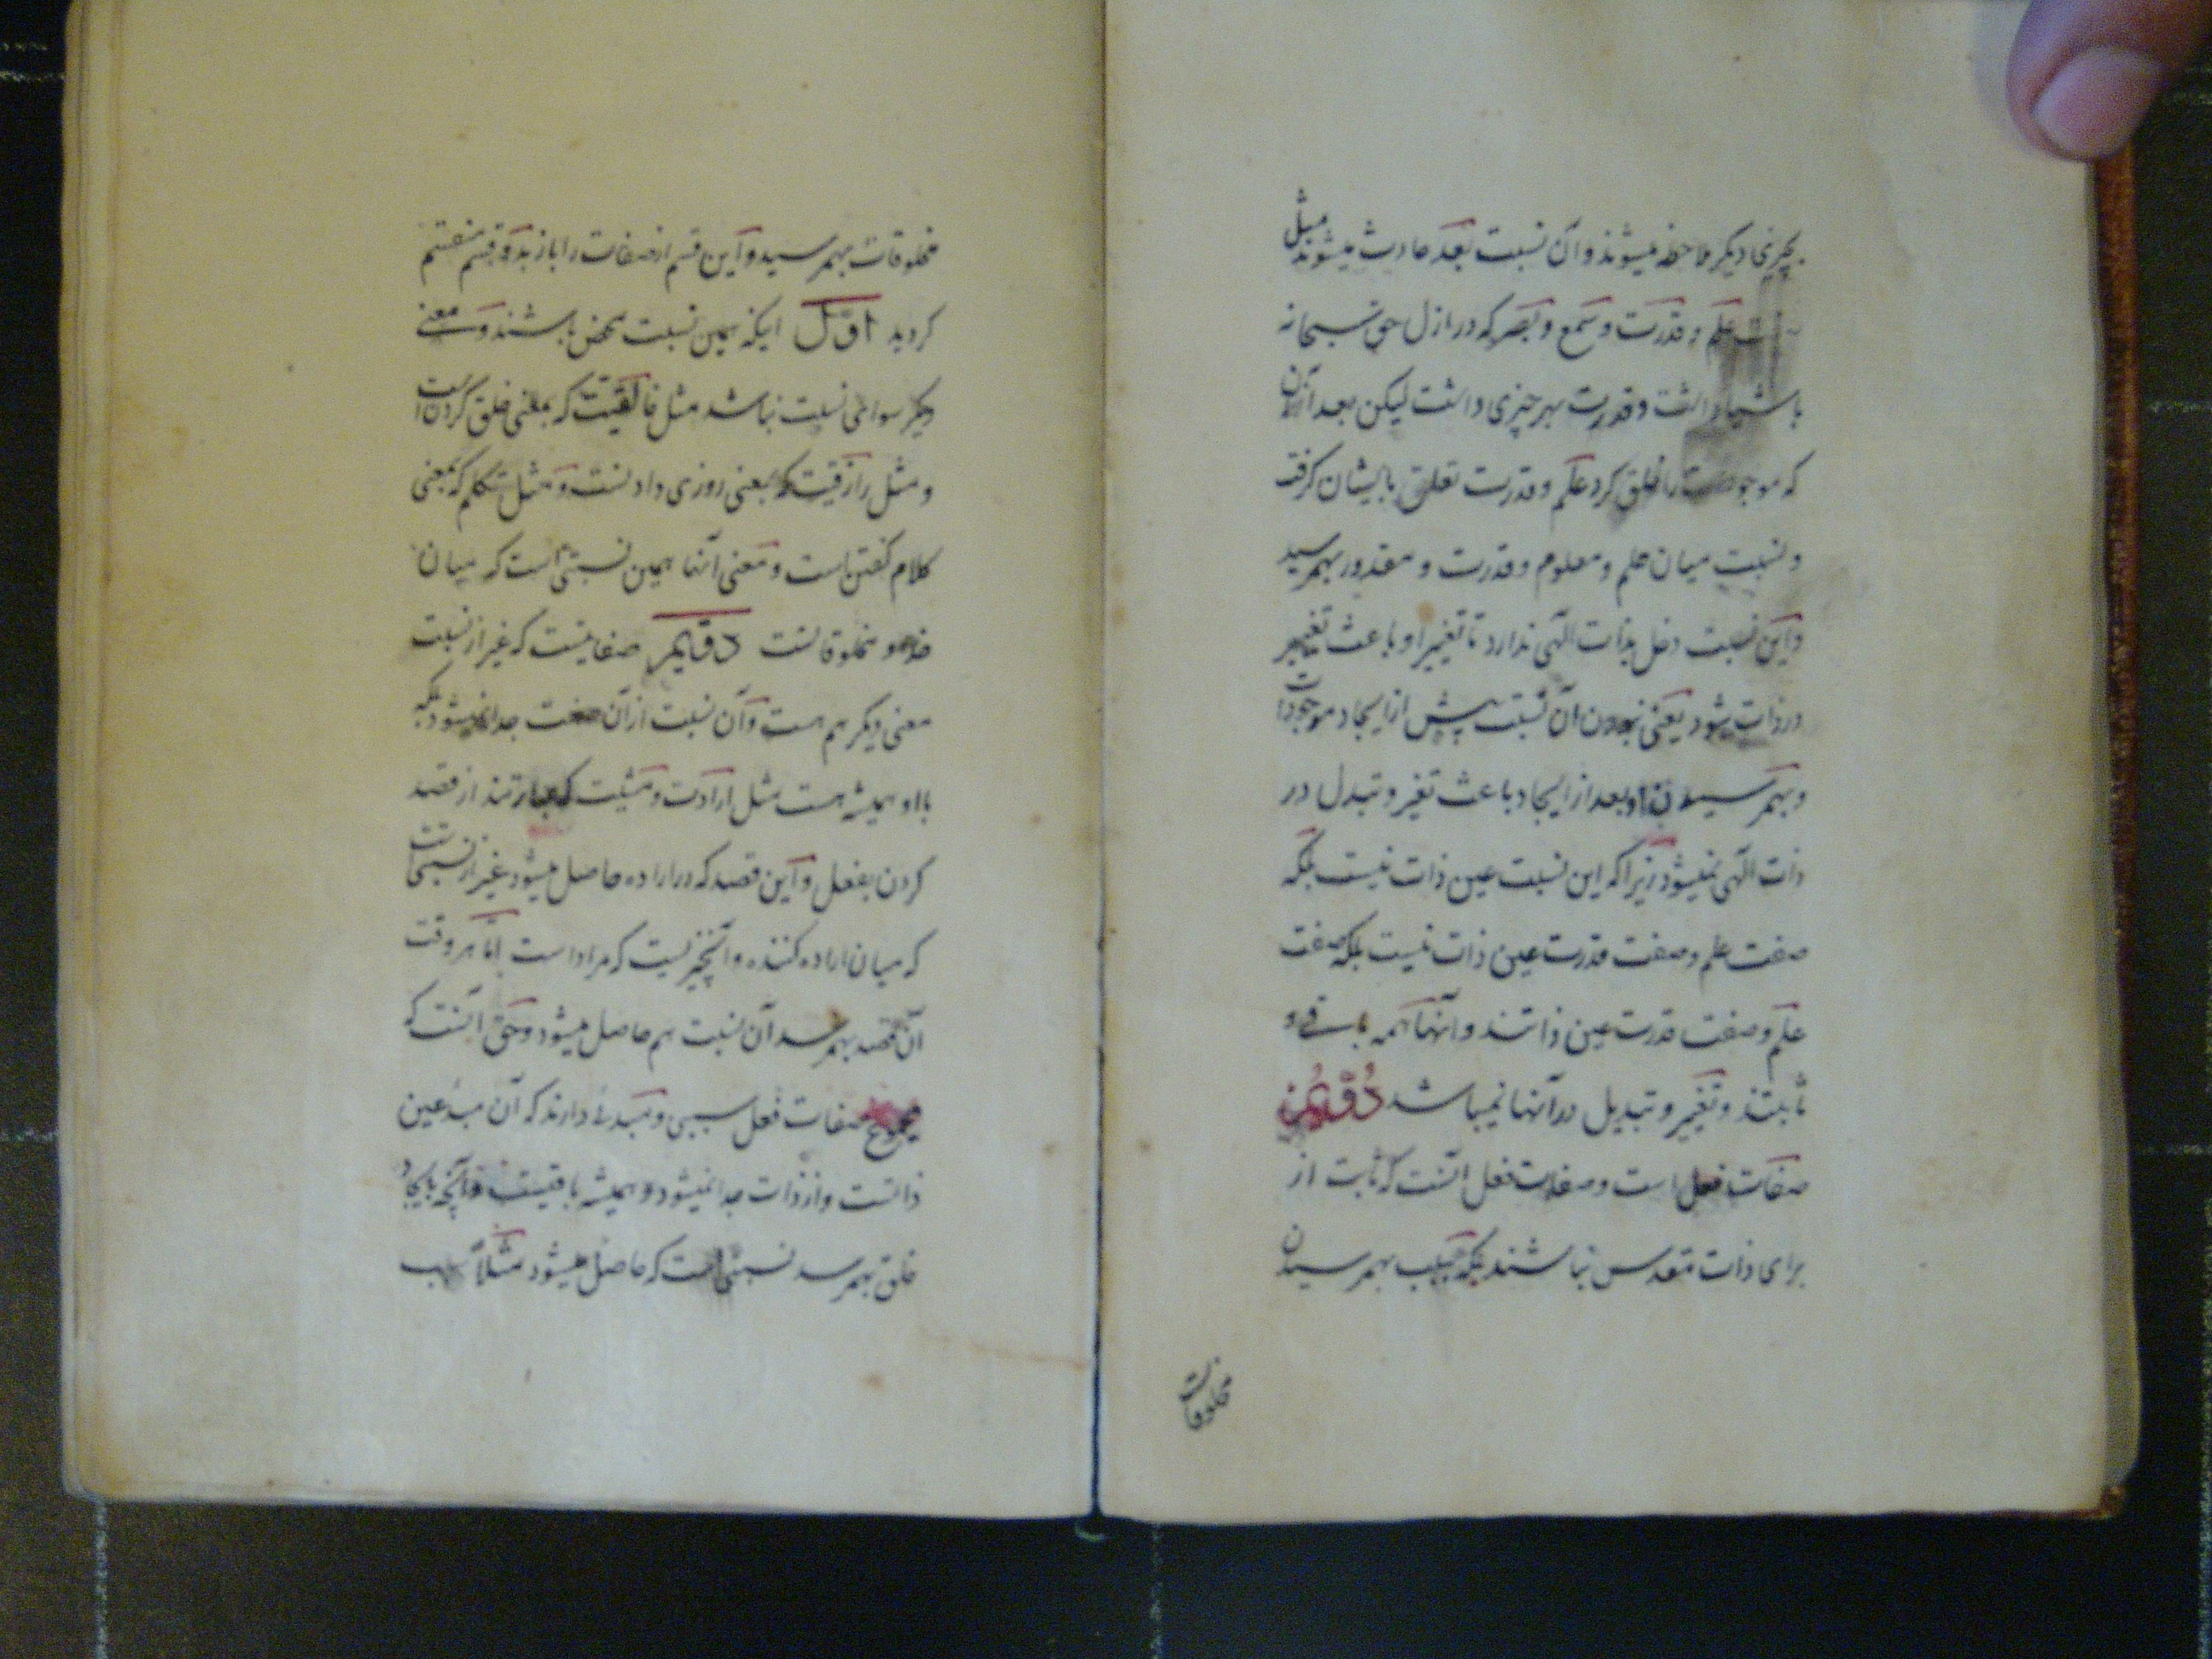 بچیزی دیگر ملاحظه میشوند و آن نسبت بعد حادث میشوند مثل
علم و قدرت و سمع و بصر که در ازل حق سبحانه
باشیا دانست و قدرت بهر چیزی داشت لیکن بعد از آن
که موجودات را خلق کرد علم و قدرت تعلق بایشان گرفت
و نسبت میان علم و معلوم و قدرت و مقدور بهمرسید
و این نسبت دخل بذات الهی ندارد تا تغییر او باعث تغییر
در ذات شود یعنی نبودن آن نسبت پیش از ایجاد موجودات
و بهمرسیدن او بعد از ایجاد باعث تغیر و تبدل در
ذات الهی نمیشود زیرا که این نسبت عین ذات نیست بلکه
صفت علم و صفت قدرت عین ذات نیست بلکه صفت
علم و صفت قدرت عین ذاتند و آنها همه باقی و
ثابتند و تغییر و تبدیل در آنها نمیباشد دویمین
صفات فعل است و صفات فعل آنست که ثابت از
برای ذات مقدس نباشند بلکه بسبب بهمرسیدن
مخلوقات
مخلوقات بهمرسید و این قسم از صفات را باز بدو قسم منقسم
کردید اول اینکه همین نسبت محض باشند و معنی
دیگر سوای نسبت نباشد مثل خالقیت که بمعنی خلق کردن است
و مثل رازقیت که بمعنی روزی دادنست و مثل تکلم که بمعنی
کلام گفتن است و معنی آنها همین نسبتی است که میان
خدا و مخلوقاتست دویم صفاتیست که غیر از نسبت
معنی دیگر هم هست و آن نسبت از آن صفت جدا نمیشود بلکه
با او همیشه هست مثل ارادت و مشیت که عبارتند از قصد
کردن بفعل و این قصد که در اراده حاصل میشود غیر از نسبتی است
که میان اراده کننده و آنچیزیست که مراد است اما هر وقت
آن قصد بهمرسد آن نسبت هم حاصل میشود و حق آنست که
مجموع صفات فعل سببی و مبدئی دارند که آن مبدء عین
ذاتست و از ذات جدا نمیشود و همیشه باقیست و آنچه بایجاد
خلق بهمرسد نسبتی است که حاصل میشود مثلاً سبب